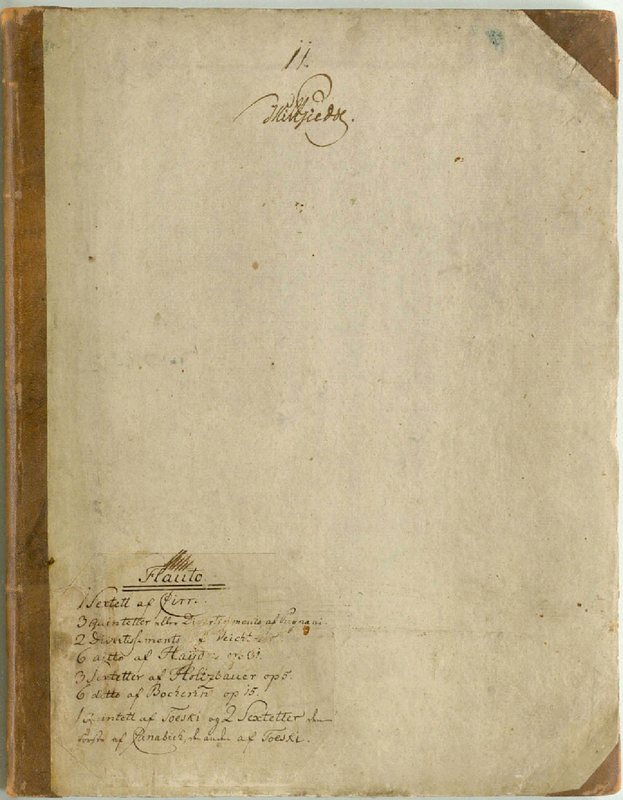 11.
Flauto
1 Sextett af Cirr.
3 Quintetter eller Divertissimento af Pugnani.
2 Divertissimenti af
6 ditto af Haydn op 31.
3 Sextetter af Holtzbauer op 5.
6 ditto af Bocherin op 15.
1 Quintett af Toeski og 2 Sextetter den
første af Canabich, den anden af Toeski.